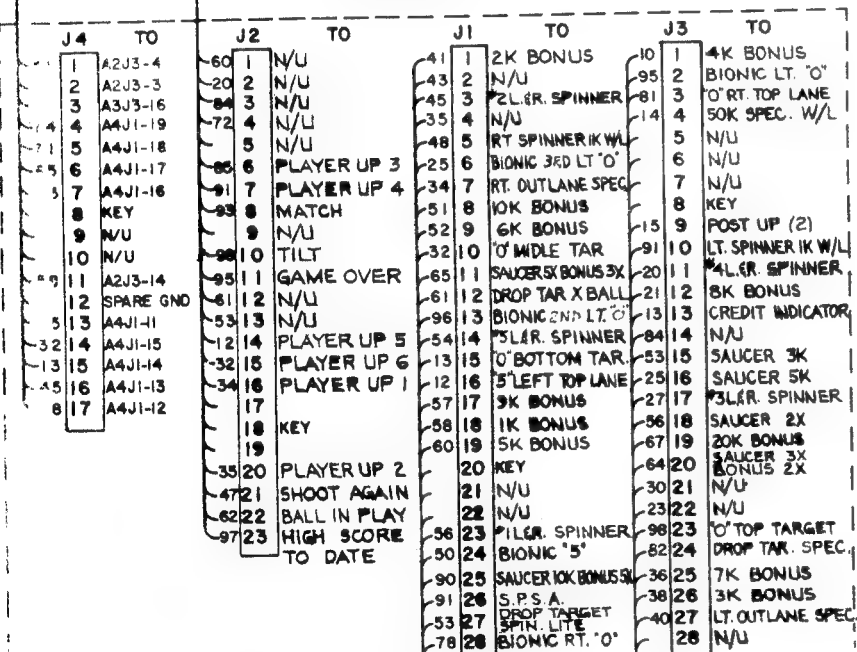 J4 TO
1 A2J3-4
2 A2J3-3
3 A3J3-16
4 A4J1-19
5 A4J1-18
6 A4J1-17
5 7 A4J1-16
8 KEY
9 N/U
10 N/U
11 A2J3-14
12 SPARE GND
5 13 A4J1-11
32 14 A4J1-15
13 15 A4J1-14
16 A4J1-13
8 17 A4J1-12
J2 TO
60 1 N/U
20 2 N/U
84 3 N/U
72 4 N/U
5 N/U
85 6 PLAYER UP 3
91 7 PLAYER UP 4
93 8 MATCH
9 N/U
98 10 TILT
95 11 GAME OVER
61 12 N/U
53 13 N/U
12 14 PLAYER UP 5
32 15 PLAYER UP 6
34 16 PLAYER UP 1
17
18 KEY
19
35 20 PLAYER UP 2
47 21 SHOOT AGAIN
62 22 BALL IN PLAY
97 23 HIGH SCORE
TO DATE
J1 TO
41 1 2K BONUS
43 2 N/U
45 3 #2L.&R. SPINNER
35 4 N/U
48 5 RT SPINNER 1K W/L
25 6 BIONIC 3RD LT "O"
34 7 RT. OUTLANE SPEC
51 8 10K BONUS
52 9 6K BONUS
32 10 "O" MIDLE TAR
65 11 SAUCER 5X BONUS 3X
61 12 DROP TAR X BALL
96 13 BIONIC 2ND LT. "O"
54 14 #5L&R. SPINNER
13 15 "O" BOTTOM TAR.
12 16 "5" LEFT TOP LANE
57 17 9K BONUS
58 18 1K BONUS
60 19 5K BONUS
20 KEY
21 N/U
22 N/U
56 23 #1L&R. SPINNER
50 24 BIONIC "5"
90 25 SAUCER 10K BONUS 5X
91 26 S.P.S.A.
53 27 DROP TARGET
SPIN. LITE
78 28 BIONIC RT. "O"
J3 TO
10 1 4K BONUS
95 2 BIONIC LT. "O"
81 3 "O" RT. TOP LANE
14 4 50K SPEC. W/L
5 N/U
6 N/U
7 N/U
8 KEY
15 9 POST UP (2)
91 10 LT. SPINNER 1K W/L
20 11 #4L.&R. SPINNER
21 12 8K BONUS
13 13 CREDIT INDICATOR
84 14 N/U
53 15 SAUCER 3K
25 16 SAUCER 5K
27 17 #3L&R. SPINNER
56 18 SAUCER 2X
67 19 20K BONUS
64 20 SAUCER 3X
BONUS 2X
30 21 N/U
23 22 N/U
98 23 "O" TOP TARGET
82 24 DROP TAR. SPEC.
36 25 7K BONUS
38 26 3K BONUS
40 27 LT. OUTLANE SPEC.
28 N/U